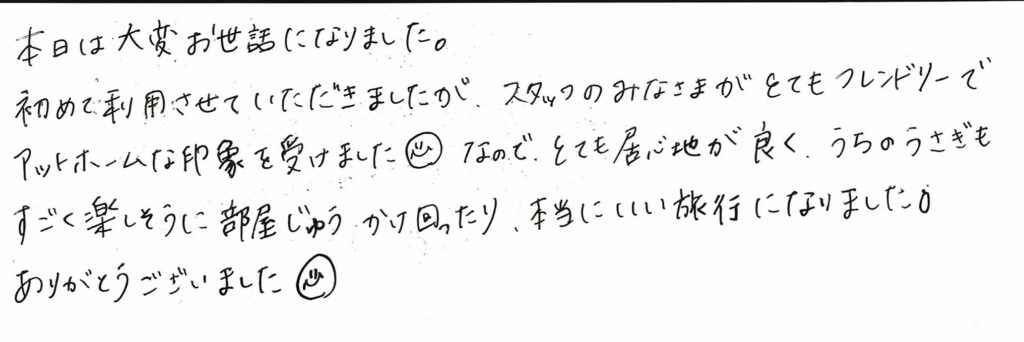 本日は大変お世話になりました。
初めて利用させていただきましたが、スタッフのみなさまがとてもフレンドリーで
アットホームな印象を受けました☺ なので、とても居心地が良く、うちのうさぎも
すごく楽しそうに部屋じゅうかけ回ったり、本当にいい旅行になりました。
ありがとうございました☺